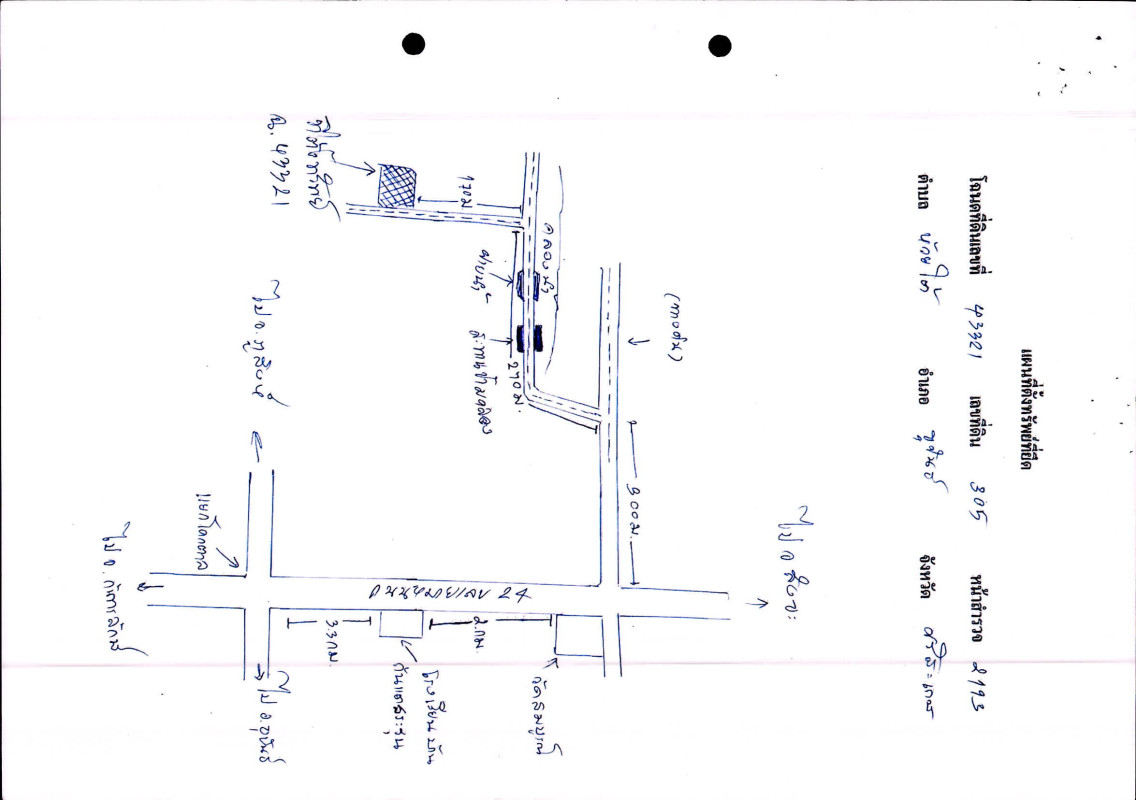 แผนที่ตั้งทรัพย์ที่ยึด
โฉนดที่ดินเลขที่ 43321 เลขที่ดิน 305 หน้าสำรวจ 2193
ตำบล อำเภอ ขุขันธ์ จังหวัด ศรีสะเกษ
ไป อ.สังขะ
(ทางดิน)
900ม.
คลองน้ำ
170ม.
ที่ตั้งทรัพย์
ฉ. 43321
ฝายน้ำ
สะพานข้ามคลอง
270ม.
ไป อ.ภูสิงห์
ถนนหมายเลข 24
วัดสมบูรณ์
2 กม.
โรงเรียนบ้าน
3.3 กม.
แยกโคกตาล
ไป อ.ขุขันธ์
ไป อ.กันทรลักษ์